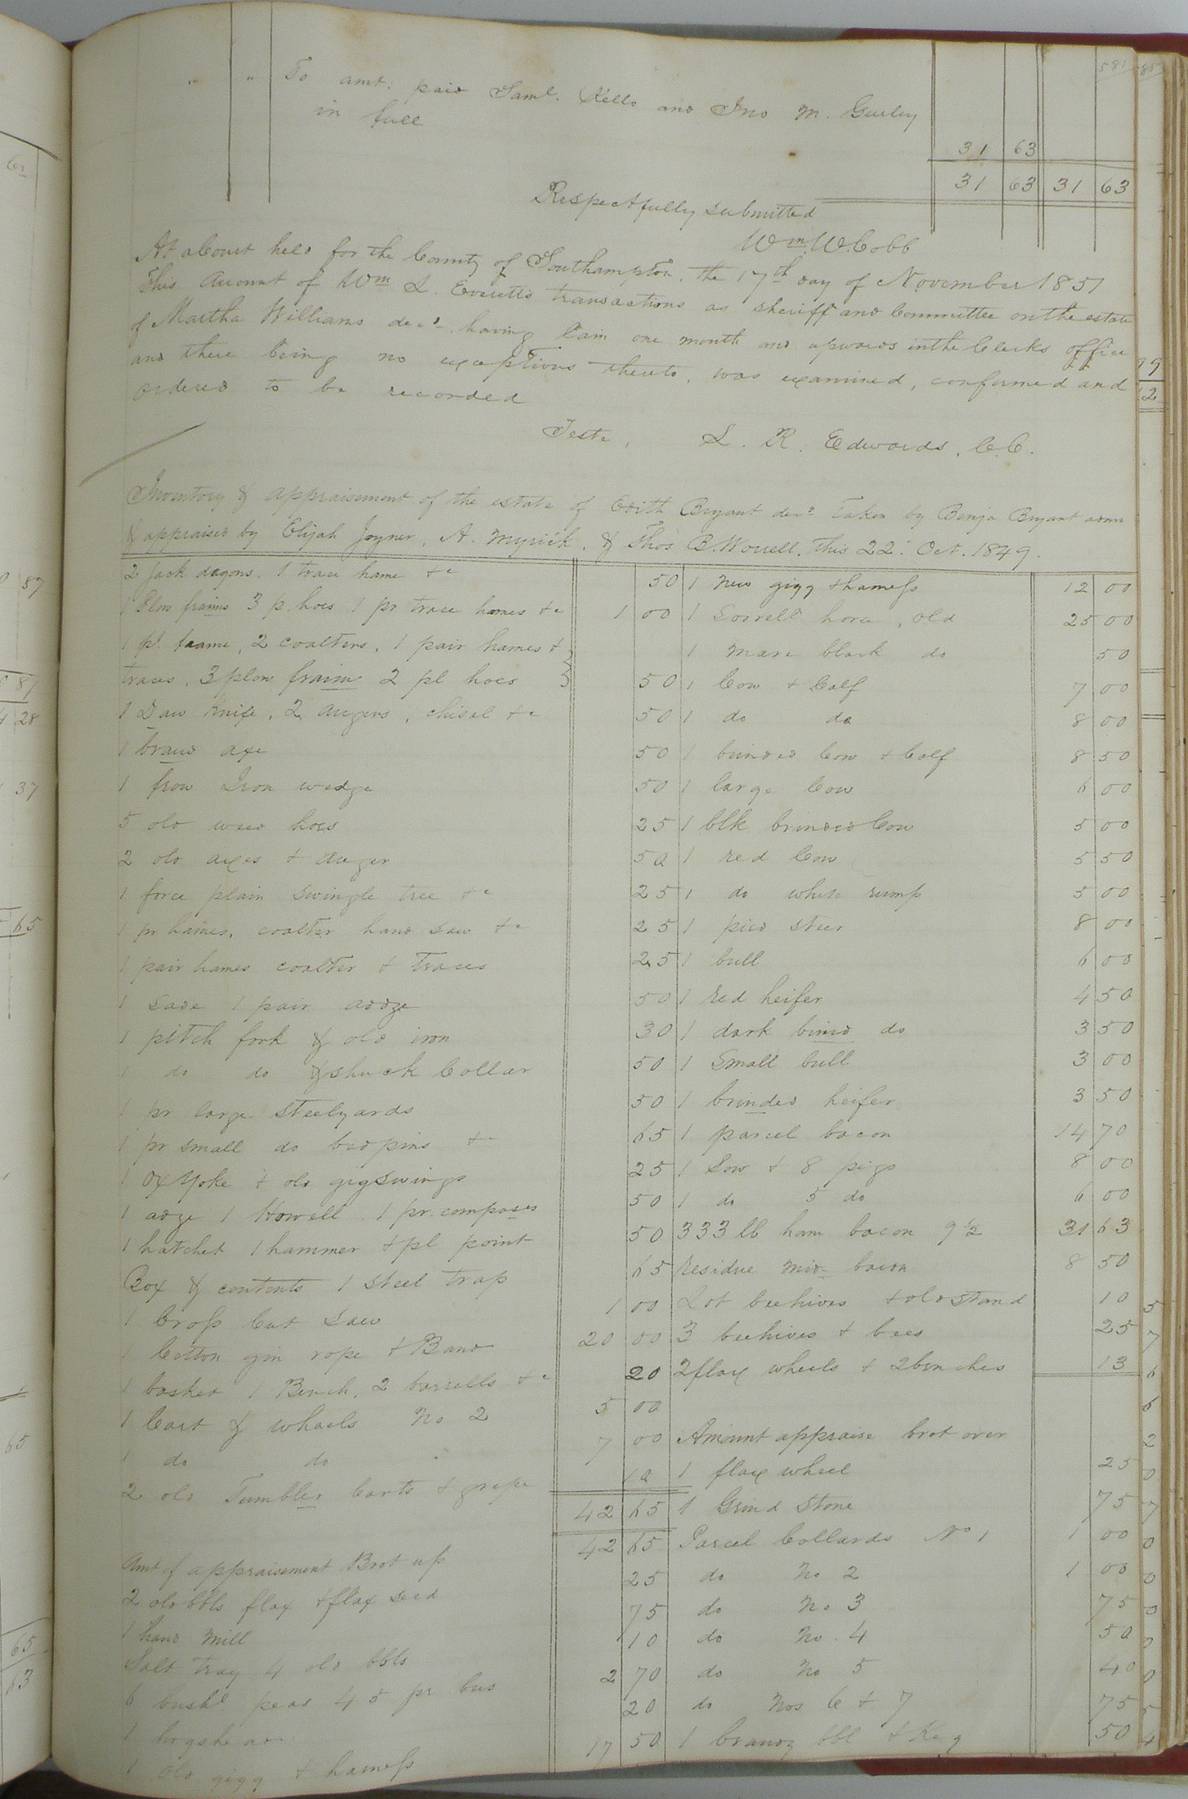 581
" " To amt. paid Saml. Kello and Jno M. Gurley
in full
31 63
31 63 31 63
Respectfully submitted
Wm. W. Cobb
At a Court held for the County of Southampton, the 17th day of November 1851
This Account of Wm L. Everetts transactions as sheriff and Committee on the estate
of Martha Williams decd. having lain one month and upwards in the Clerks office
and there being no exceptions thereto, was examined, confirmed and
ordered to be recorded
Teste, L. R. Edwards, C.C.
Inventory & appraisement of the estate of Edith Bryant decd. Taken by Benja Bryant admr
& appraised by Elijah Joyner, A. Myrick, & Thos B. Worrell, this 22d. Oct. 1849.
2 Jack 1 trace hame &c 50
1 Plow fraims 3 p. hoes 1 pr trace hames &c 1 00
1 pl. fraame, 2 coalters, 1 pair hames &
traces, 3 plow fraims 2 pl hoes 50
1 Daw Knife, 2 augers, chisel &c 50
1 braud axe 50
1 frow Iron wedge 50
5 old weed hoes 25
2 old axes & auger 50
1 force plain swingle tree &c 25
1 pr hames, coalter hand saw &c 25
1 pair hames coalter & traces 25
1 sade 1 pair adze 50
1 pitch fork & old iron 30
do do & shuck Collar 50
1 pr large steelyards 50
1 pr small do bedpins &c 65
1 ox yoke & old gigswings 25
1 adze 1 Howell 1 pr. compases 50
1 hatchet 1 hammer & pl point 50
Box & contents 1 steel trap 65
1 Cross Cut saw 1 00
1 Cotton gin rope & Band 20 00
1 basket 1 Bench, 2 barrells &c 20
1 Cart & wheels No 2 5 00
1 do do 7 00
2 old Tumbler Carts & 10
42 65
Amt of appraisement Brot up 42 65
2 old bbls flax & flax seed 25
1 hand mill 75
Salt tray 4 old bbls 10
6 bushl peas 45 pr bus 2 70
1 hogshead 20
1 old gigg & harness 17 50
1 new gigg & harness 12 00
1 Sorrell horse, old 25 00
1 mare black do 50
1 Cow & Calf 7 00
1 do do 8 00
1 brinded Cow & Calf 8 50
1 large Cow 6 00
1 blk brinded Cow 5 00
1 red Cow 5 50
1 do white rump 5 00
1 pied steer 8 00
1 bull 6 00
1 red heifer 4 50
1 dark do 3 50
1 Small bull 3 00
1 brinded heifer 3 50
1 parcel bacon 14 70
1 Sow & 8 pigs 8 00
1 do 5 do 6 00
333 lb ham bacon 9½ 31 63
Residue bacon 8 50
Lot beehives & old stand 10
3 beehives & bees 25
2 flax wheels & 2 benches 13
Amount appraise brot over
1 flax wheel 25
1 Grind Stone 75
Parcel Collards No 1 1 00
do No 2 1 00
do No 3 75
do No. 4 50
do No 5 40
do Nos 6 & 7 75
1 brandy bbl & Keg 50